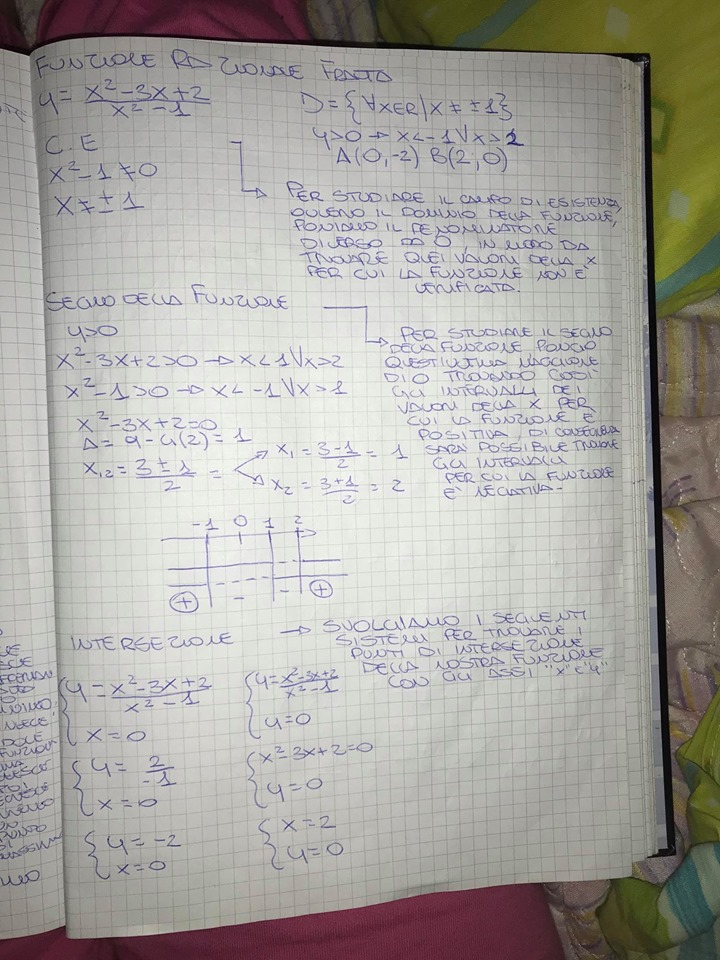 FUNZIONE RAZIONALE FRATTA
y = x² - 3x + 2 / x² - 1
D = {∀x∈R | x ≠ ±1}
y>0 → x < -1 ∨ x > 2
A(0, -2) B(2, 0)
C.E
x² - 1 ≠ 0
x ≠ ± 1
PER STUDIARE IL CAMPO DI ESISTENZA,
OVVERO IL DOMINIO DELLA FUNZIONE,
PONIAMO IL DENOMINATORE
DIVERSO DA 0, IN MODO DA
TROVARE QUEI VALORI DELLA X
PER CUI LA FUNZIONE NON È
VERIFICATA.
SEGNO DELLA FUNZIONE
y>0
x² - 3x + 2 > 0 → x < 1 ∨ x > 2
x² - 1 > 0 → x < -1 ∨ x > 1
x² - 3x + 2 = 0
Δ = 9 - 4(2) = 1
x₁₂ = 3 ± 1 / 2 =
x₁ = 3 - 1 / 2 = 1
x₂ = 3 + 1 / 2 = 2
PER STUDIARE IL SEGNO
DELLA FUNZIONE PONGO
QUEST'ULTIMA MAGGIORE
DI 0 TROVANDO COSÌ
GLI INTERVALLI DEI
VALORI DELLA X PER
CUI LA FUNZIONE È
POSITIVA, DI CONSEGUENZA
SARÀ POSSIBILE TROVARE
GLI INTERVALLI
PER CUI LA FUNZIONE
È NEGATIVA-
-1 0 1 2
+ - - +
INTERSEZIONE → SVOLGIAMO I SEGUENTI
SISTEMI PER TROVARE I
PUNTI DI INTERSEZIONE
DELLA NOSTRA FUNZIONE
CON GLI ASSI "x" E "y"
{ y = x² - 3x + 2 / x² - 1
x = 0
{ y = 2 / -1
x = 0
{ y = -2
x = 0
{ y = x² - 3x + 2 / x² - 1
y = 0
{ x² - 3x + 2 = 0
y = 0
{ x = 2
y = 0